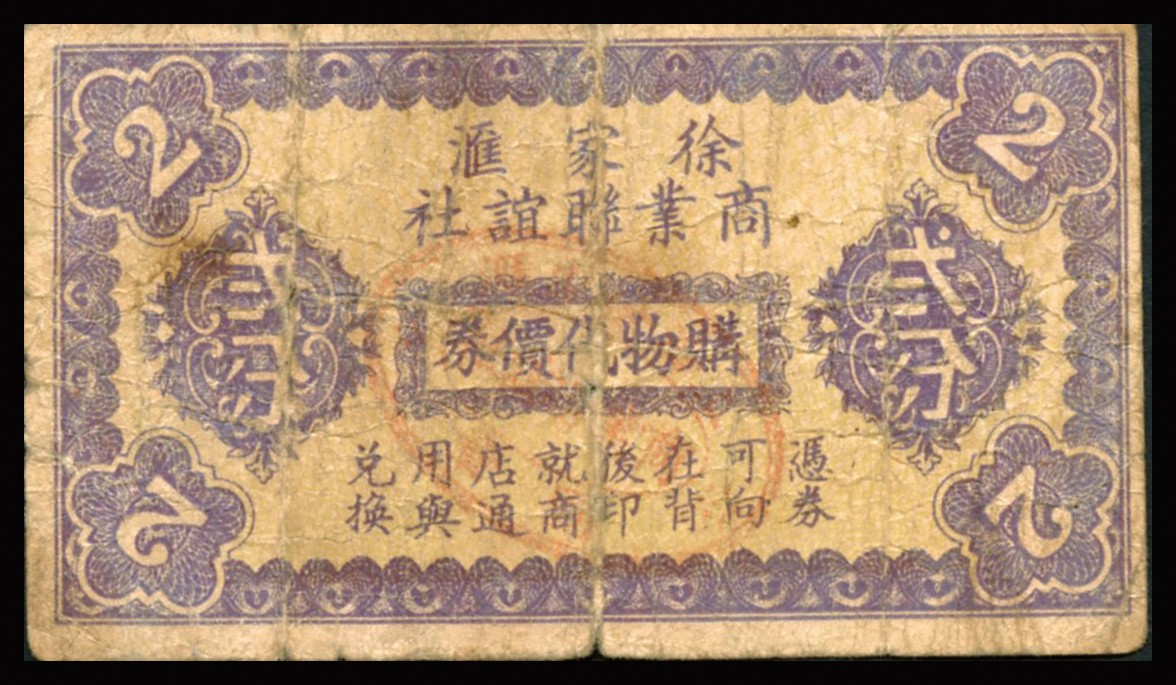 2
2
徐家滙
商業聯誼社
弍分
購物代價券
弍分
憑券
可向
在背
後印
就商
店通
用與
兌換
2
2